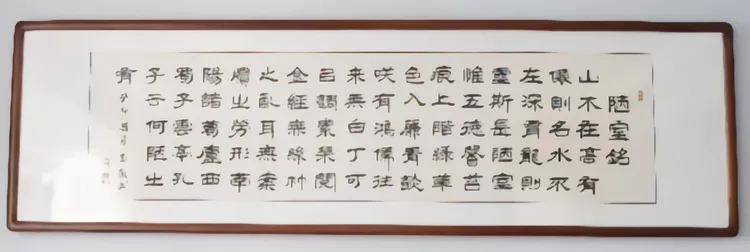 陋室銘
山不在高有
僊則名水不
在深有龍則
靈斯是陋室
惟吾德馨苔
痕上階綠草
色入簾青談
咲有鴻儒往
來無白丁可
㠯調素琴閱
金經無絲竹
之亂耳無案
牘之勞形南
陽諸葛廬西
蜀子雲亭孔
子云何陋之
有